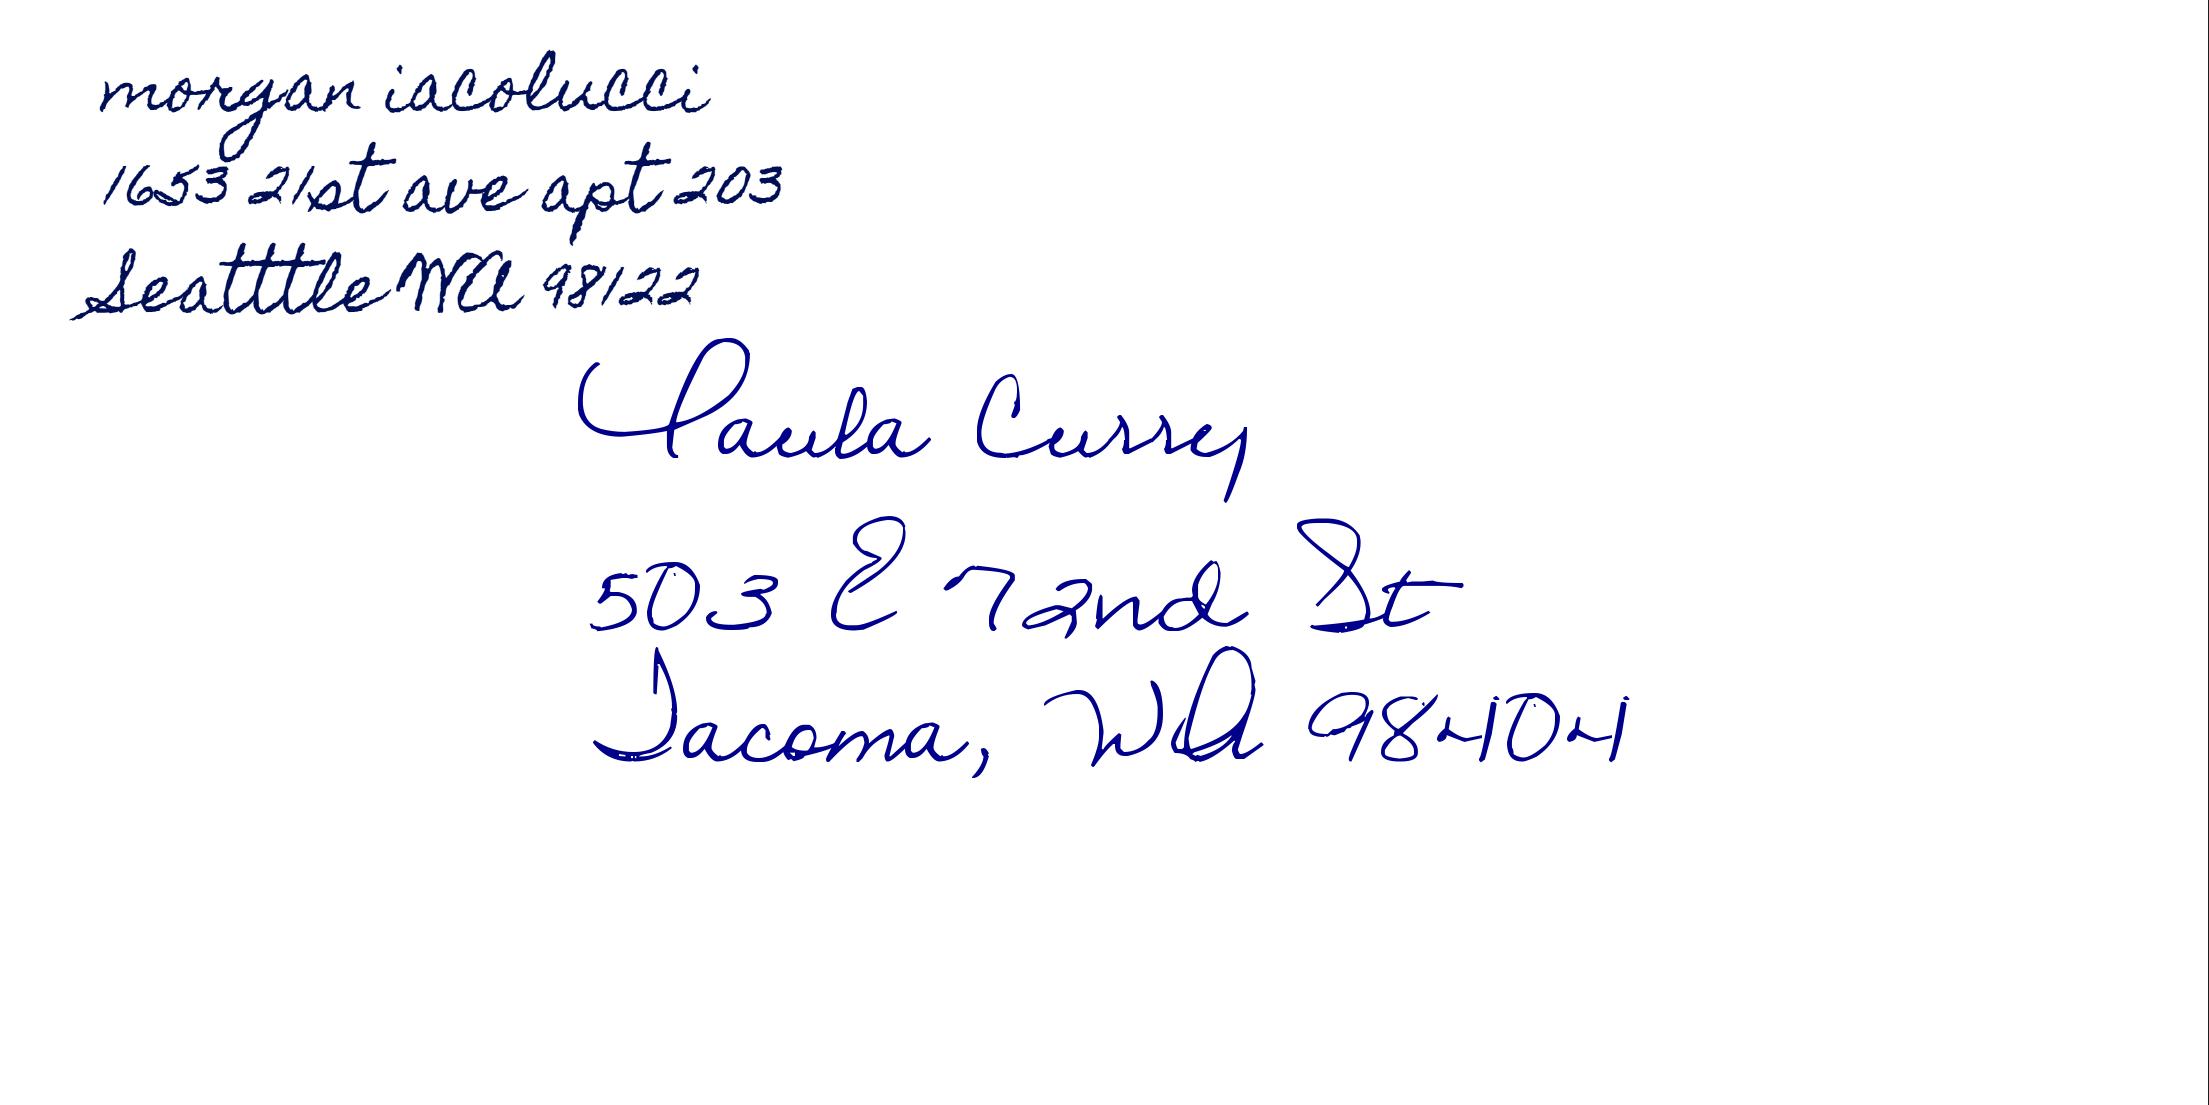 morgan iacolucci
1653 21st ave apt 203
Seatttle WA 98122
Paula Curry
503 E 72nd St
Tacoma, WA 98404